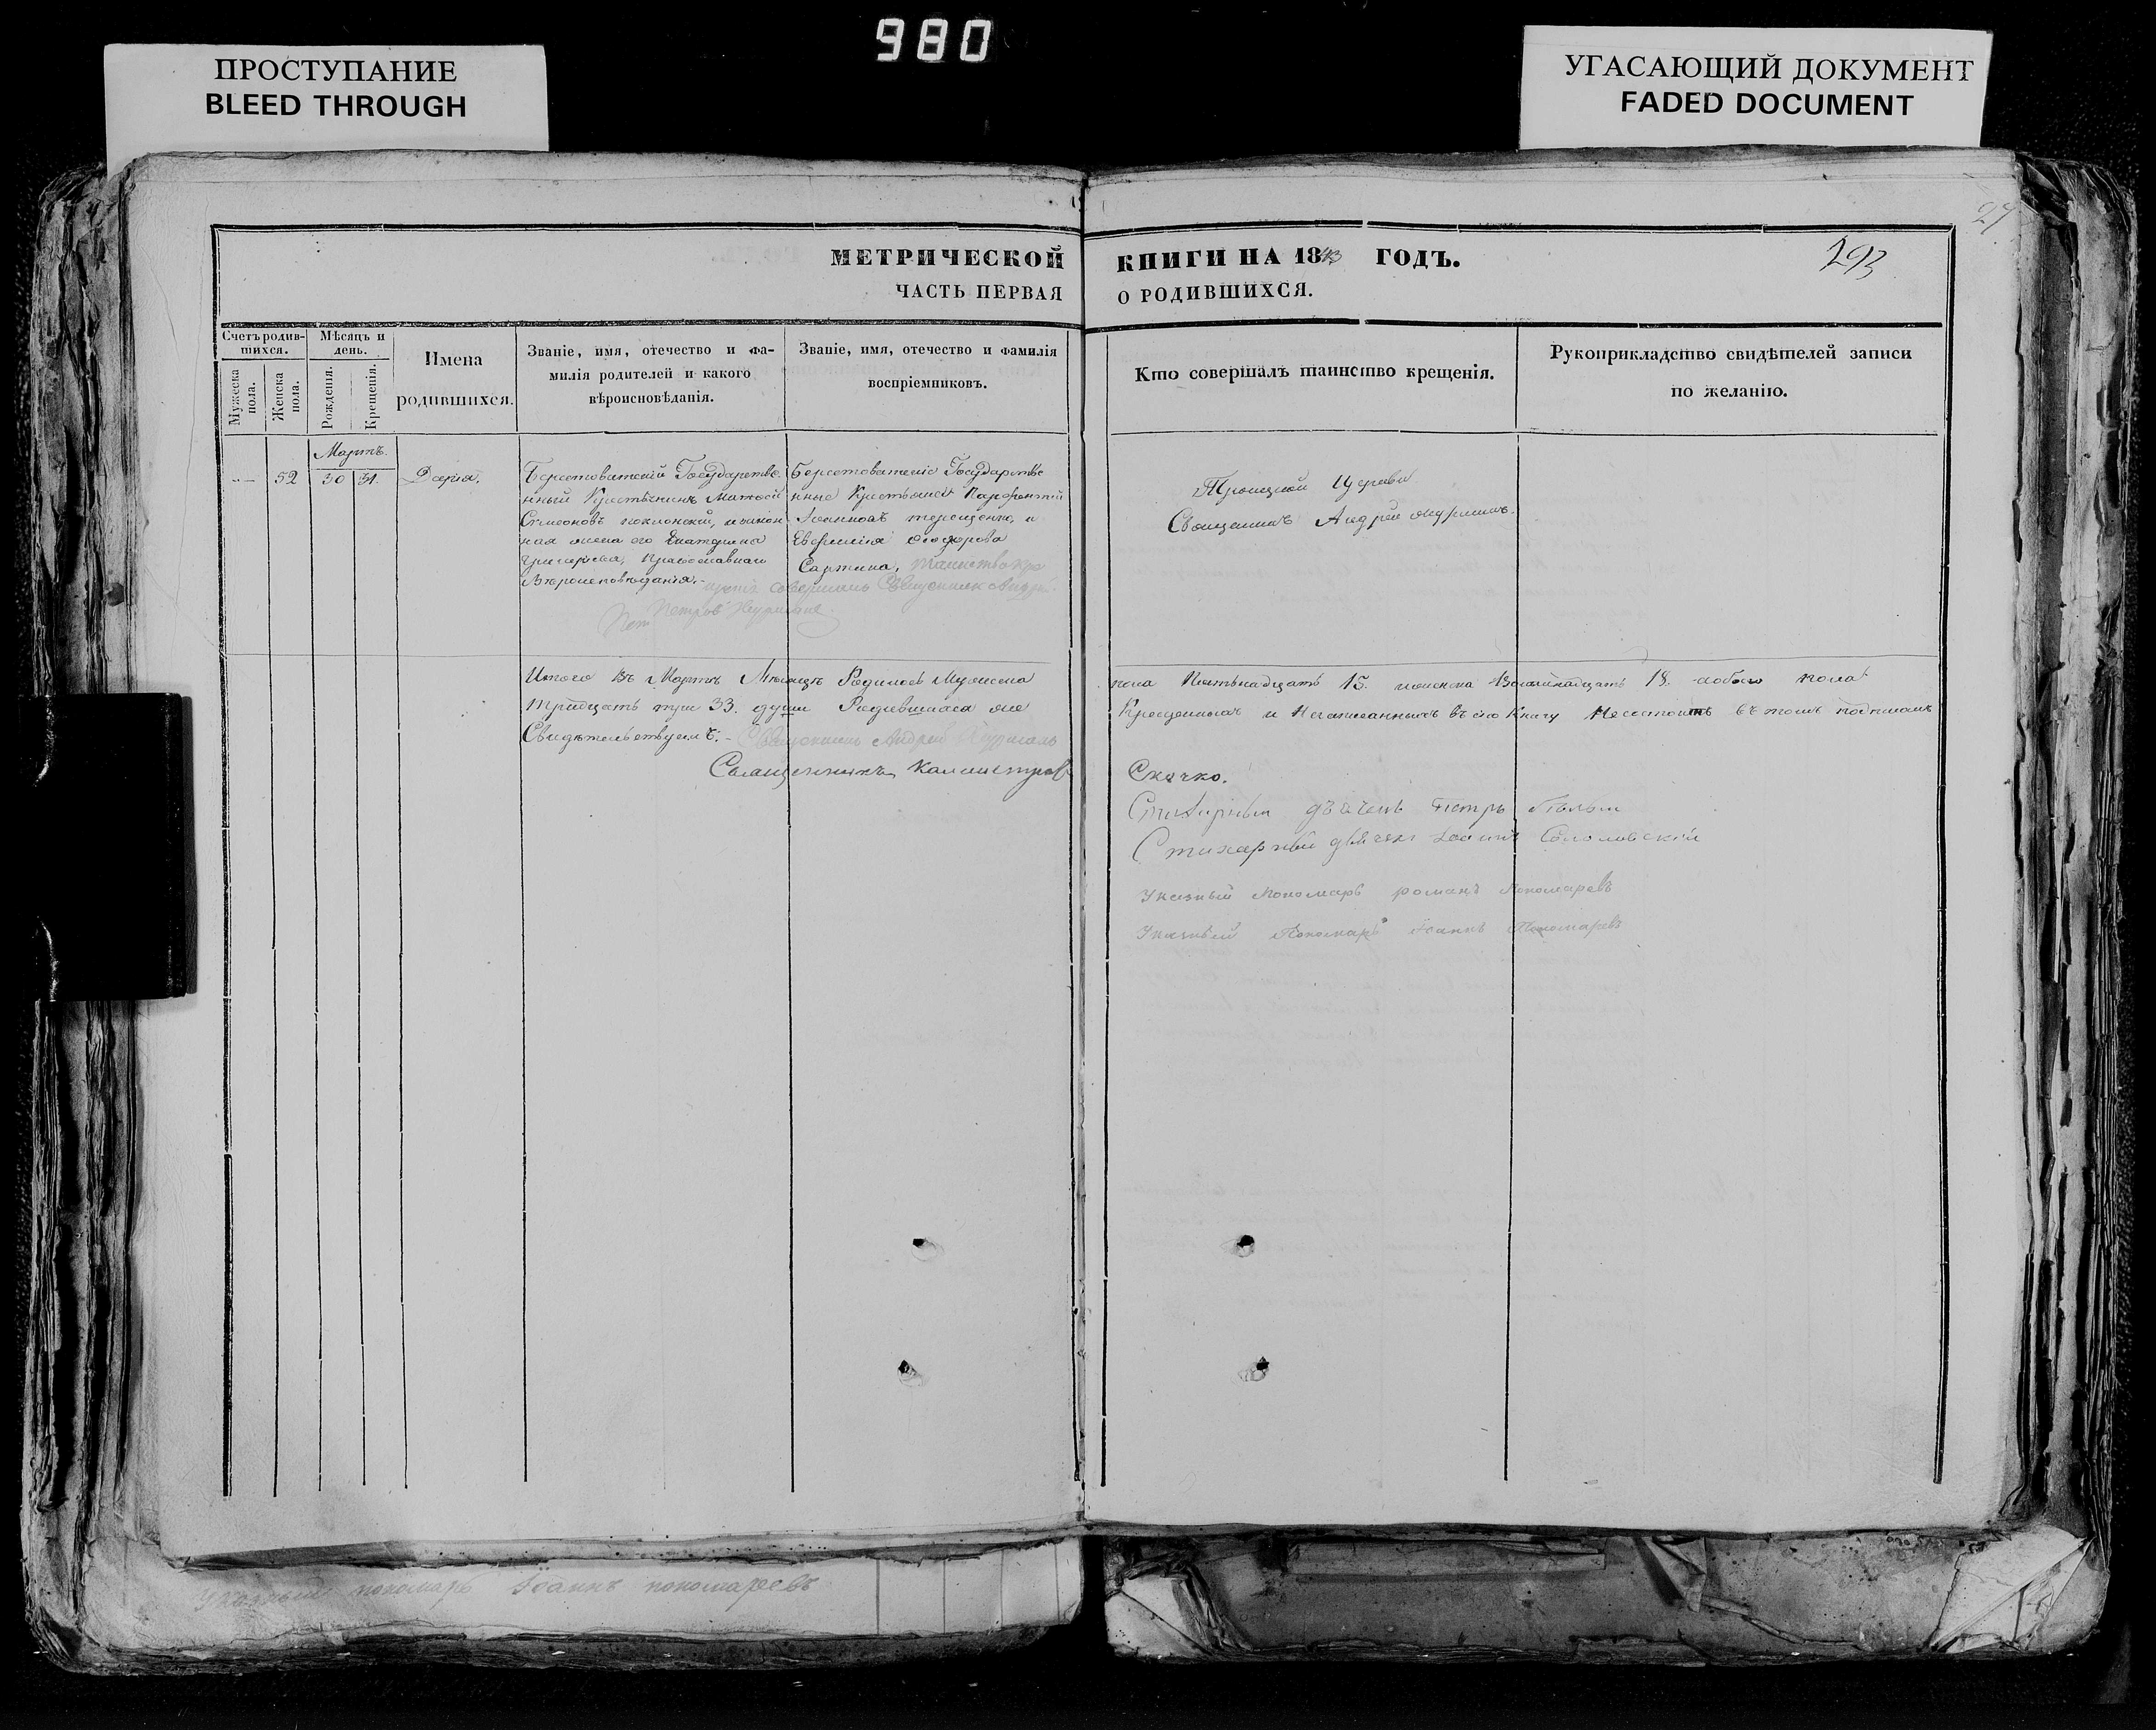 980
ПРОСТУПАНИЕ
BLEED THROUGH
УГАСАЮЩИЙ ДОКУМЕНТ
FADED DOCUMENT
293
МЕТРИЧЕСКОЙ КНИГИ НА 1843 ГОДЪ.
ЧАСТЬ ПЕРВАЯ О РОДИВШИХСЯ.
Счетъ родив-
шихся.
Мужеска
пола.
Женска
пола.
Мѣсяцъ и
день.
Рожденія.
Крещенія.
Имена
родившихся.
Званіе, имя, отечество и фа-
милія родителей и какого
вѣроисновѣданія.
Званіе, имя, отечество и фамилія
воспріемниковъ.
Кто совершалъ таинство крещенія.
Рукоприкладство свидѣтелей записи
по желанію.
Мартъ.
52
30
31.
Дарія.
Берестоватскій Государстве
нный Крестьянинъ Матвей
Симеоновъ и закон
ная жена его Екатерина
Григорьева, Православнаго
Вѣроисповѣданія.
Берестоватскіе Государстве
нные Крестьяне Парфентій
Іоанновъ терещенко, и
Евфимія Феодорова
таинство кре
щенія совершилъ Священникъ Андрей
Петров
Троицкой Церкви
Священникъ Андрей
Итого въ Мартѣ Месяцѣ Родилось Мужеска
пола Пятьнадцать 15. женска Восемнадцать 18. обоего пола
тридцать три 33. души Родившихся же
Крещенныхъ и Незаписанныхъ въ сію Книгу Несостоитъ въ томъ подписомъ
Свидѣтельствуемъ:
Священникъ Андрей
Священникъ Калистратъ
Скачко.
Стихарный дьячекъ Петръ
Стихарный дьячекъ Іоаннъ Соколовскій
Указный Пономарь романъ Пономаревъ
Указный Пономарь Іоаннъ Пономаревъ
Указный пономарь Іоаннъ пономаревъ